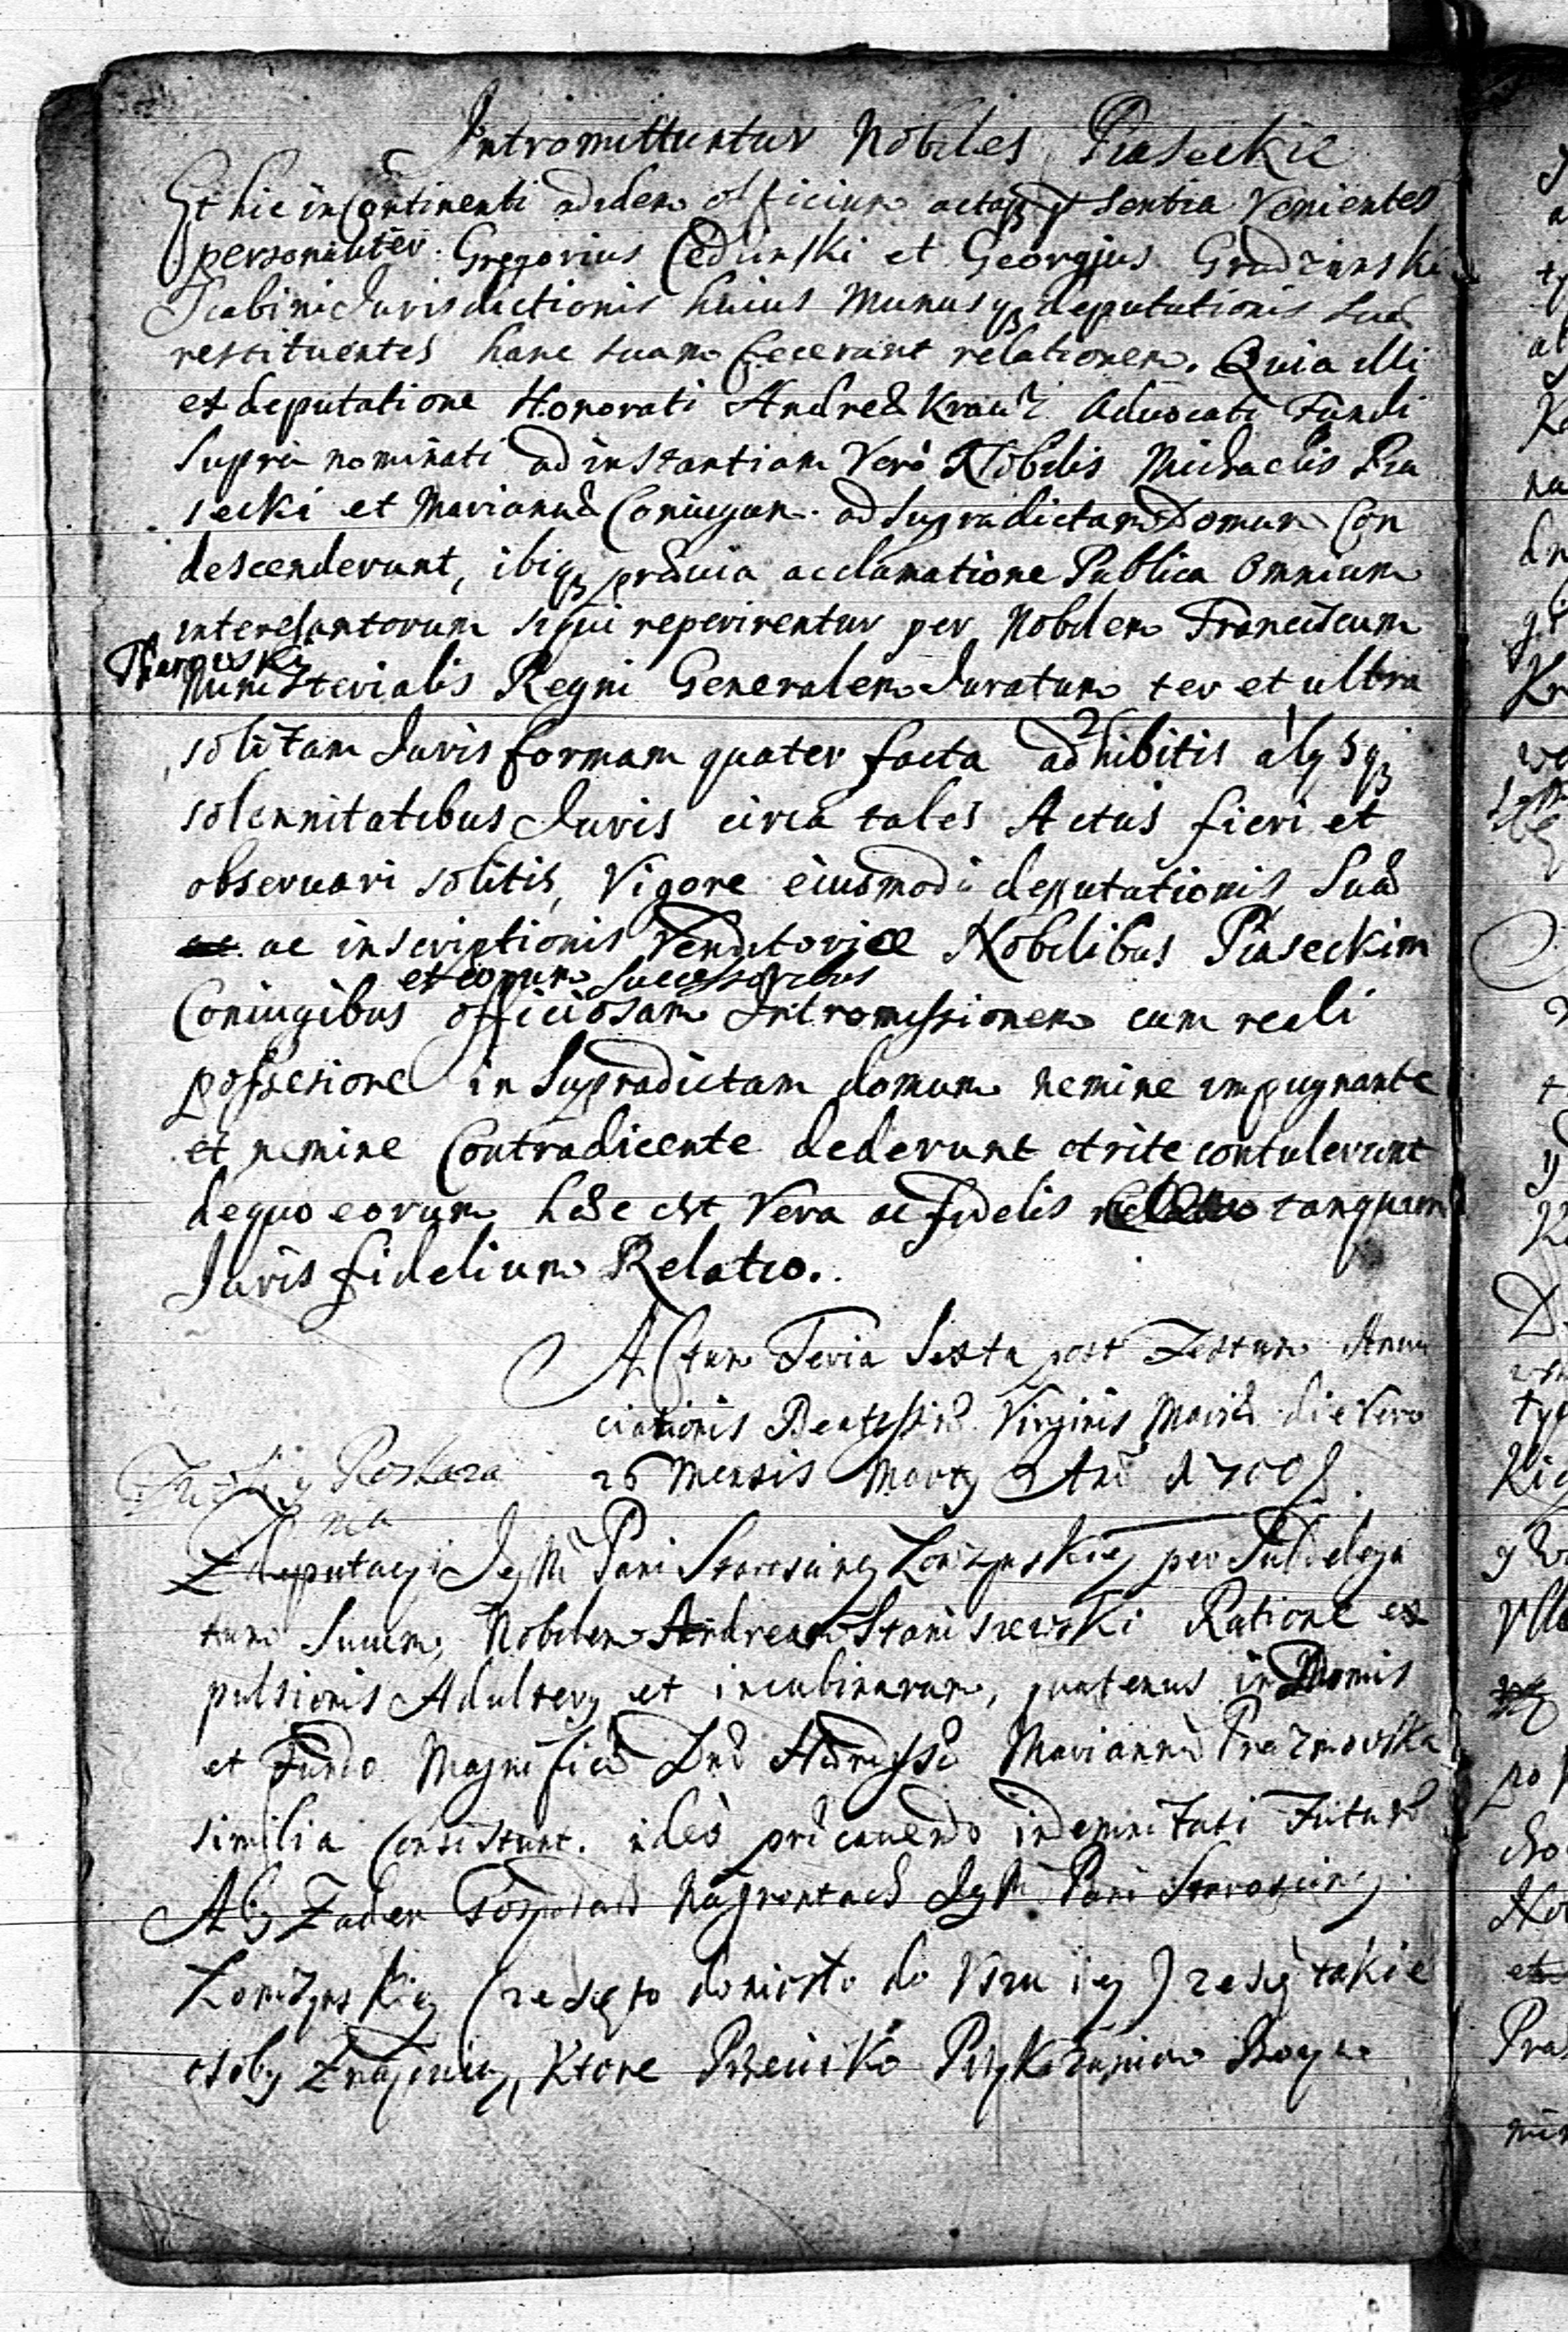 Intromittuntur Nobiles Piaseckie
Et hic in Continenti ad idem officium actaq3 p̃sentia Venientes
personaliter Gregorius Cedunski et Georgius Gradzinski
Scabini Jurisdictionis huius Munusq3 deputationis suæ
restituentes hanc suam fecerunt relationem. Quia illi
ex deputatione Honorati Andreæ Krauz Aduocati Fundi
supra nominati ad instantiam Verò Nobilis Michaelis Pia
secki et Mariannæ Coniugum ad supradictam Domum Con
descenderunt, ibiq3 præuia acclamatione Publica omnium
interessantorum siqui reperirentur per Nobilem Franciscum
Ministerialis Regni Generalem Juratum ter et ultra
solitam Juris formam quater facta adhibitis alysq3
solennitatibus Juris circa tales Actus fieri et
obseruari solitis, Vigore eiusmodi deputationis suæ
ac inscriptionis Venditoriæ Nobilibus Piaseckim
et eorum successoribus
Coniugibus officiosam Intromissionem cum reali
possesione in supradictam domum nemine impugnante
et nemine Contradicente dederunt et rite contulerunt
dequo eorum hæc est Vera ac fidelis tanquam
Juris fidelium Relatio.
Actum Feria Sexta post Festum Annun
ciationis Beatissimæ Virginis Mariæ die Vero
26 Mensis Marty Añi
Roskaza
nia
Z deputacyi JeyMći Pani Starosciney Lomzynskiey per Subdelega
tum Suum, Nobilem Andream Staniszewski Ratione ex
pulsionis Adultery et incubinarum, quatenus in Domis
et Fundo Magnificæ Dnæ Mariannæ Prazmovska
similia Consistunt. ideò præcauendo indemnitati Futuræ
Aby Zaden Gospodarz Nagrontach JeyMći Pani Starosciney
Lomzynskiey (ze sie to doniosło do Vszu iey) ze się takie
osoby Znayduią, Ktore Przeciwko Przykazaniom Bozym